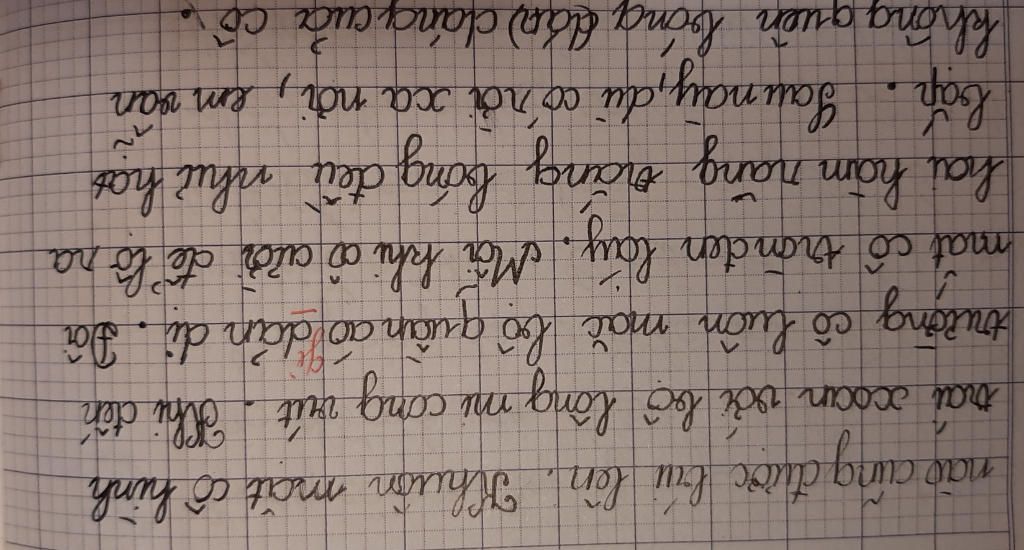 nào cũng được búi lên. Khuôn mặt cô hình
trái xoan với bộ lông mi cong vút. Khi đến
trường cô luôn mặc bộ quần áo dản dị. Đôi
gi
mắt cô tròn đen láy. Mỗi khi cô cười để lộ na
hai hàm năng trắng bóng đều như
bắp. Sau này, dù có nơi xa nơi, em vẫn
không quên bóng dáng của cô.